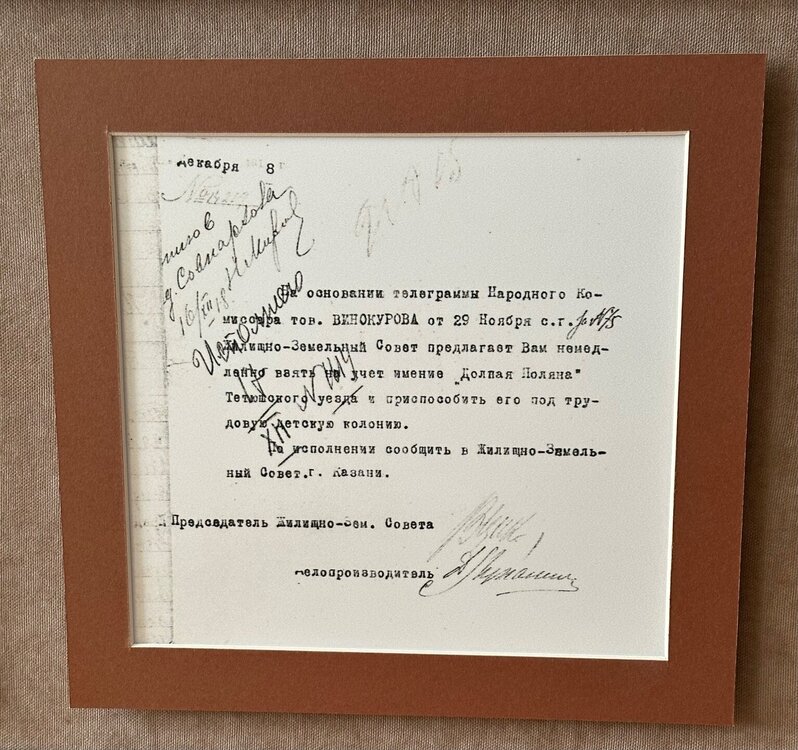 декабря 8
Совнархова
16/XII 18.
Исполнено
На основании телеграммы Народного Ко-
миссара тов. ВИНОКУРОВА от 29 Ноября с.г. за №75
Жилищно-Земельный Совет предлагает Вам немед-
ленно взять на учет имение „Долгая Поляна"
Тетюшского уезда и приспособить его под тру-
довую детскую колонию.
По исполнении сообщить в Жилищно-Земель-
ный Совет.г. Казани.
Председатель Жилищно-Зем. Совета
Делопроизводитель